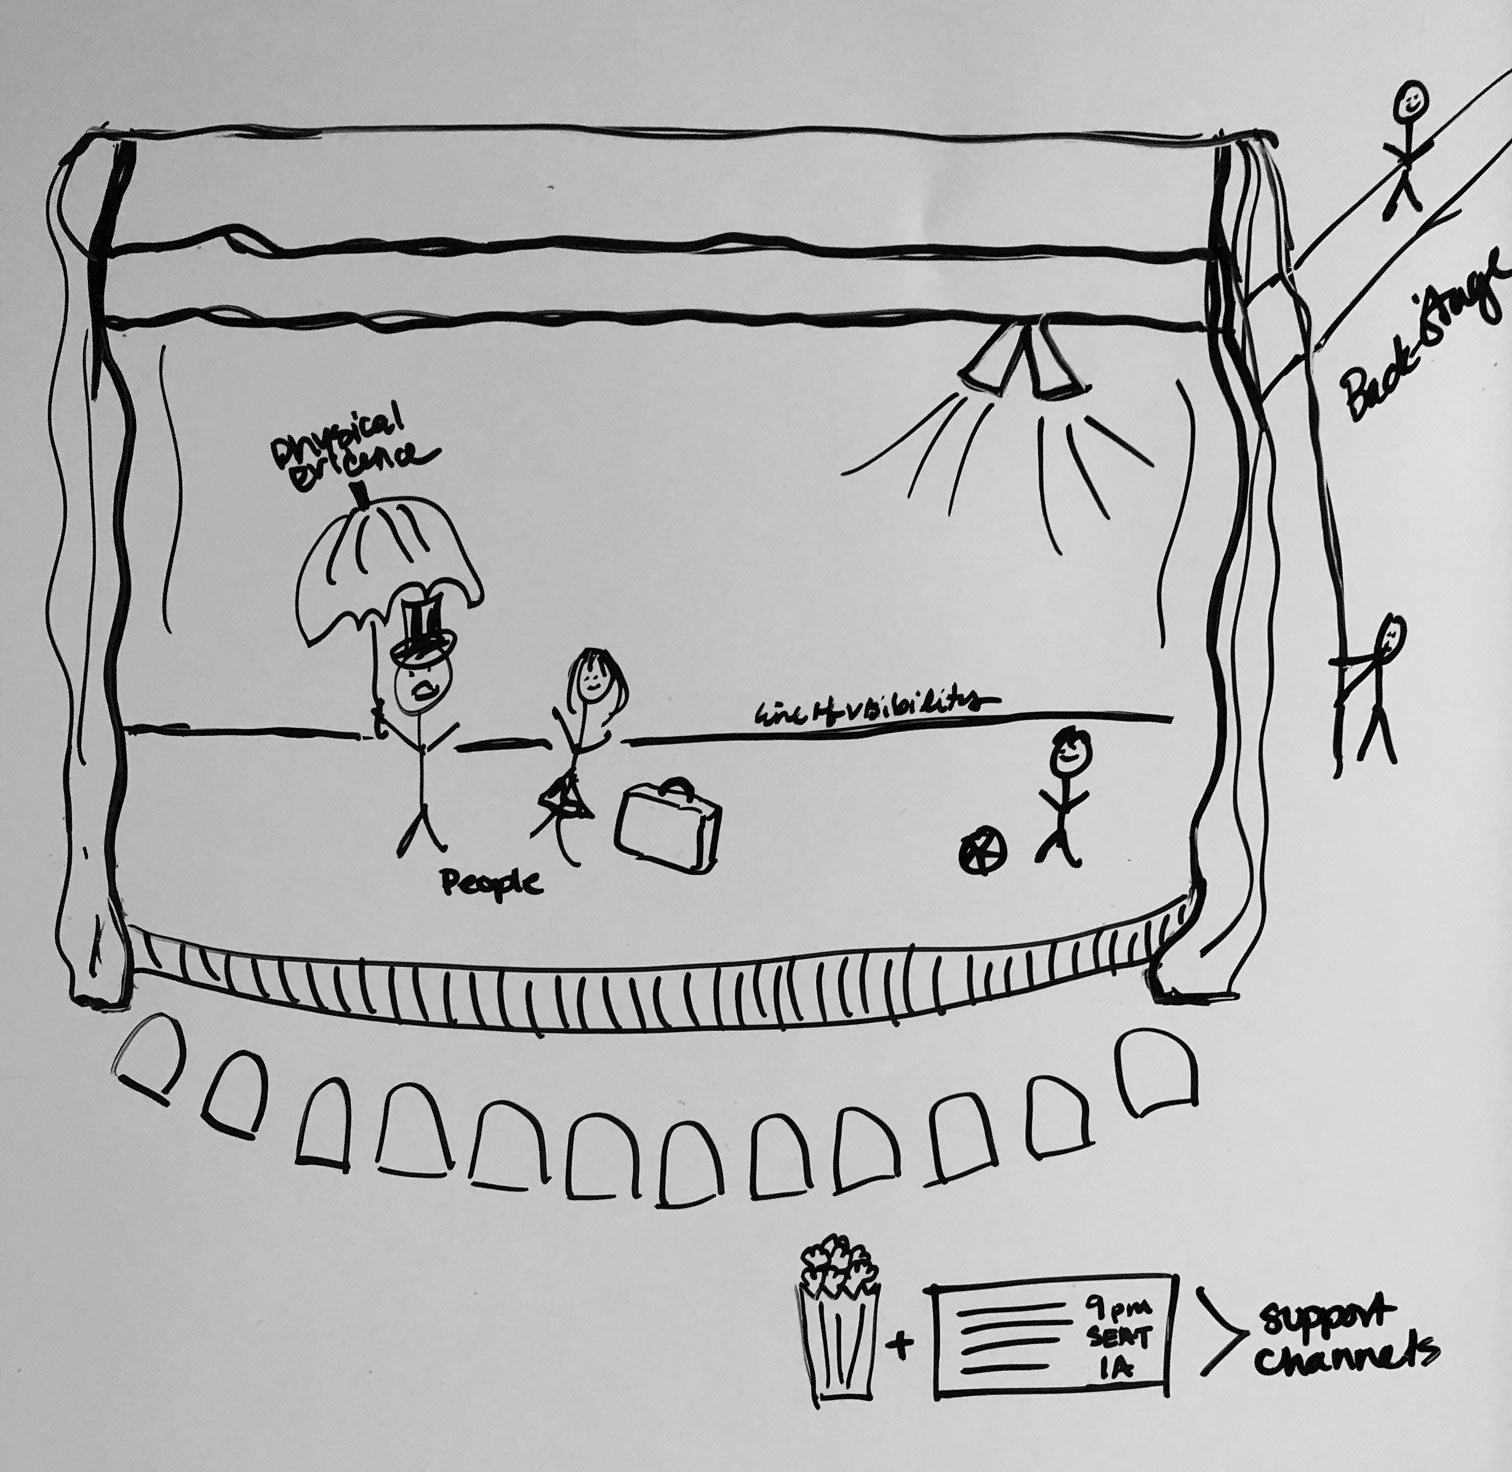 Back-stage
physical
evidence
Line of visibility
People
9pm
SEAT
1A
+
support
channels